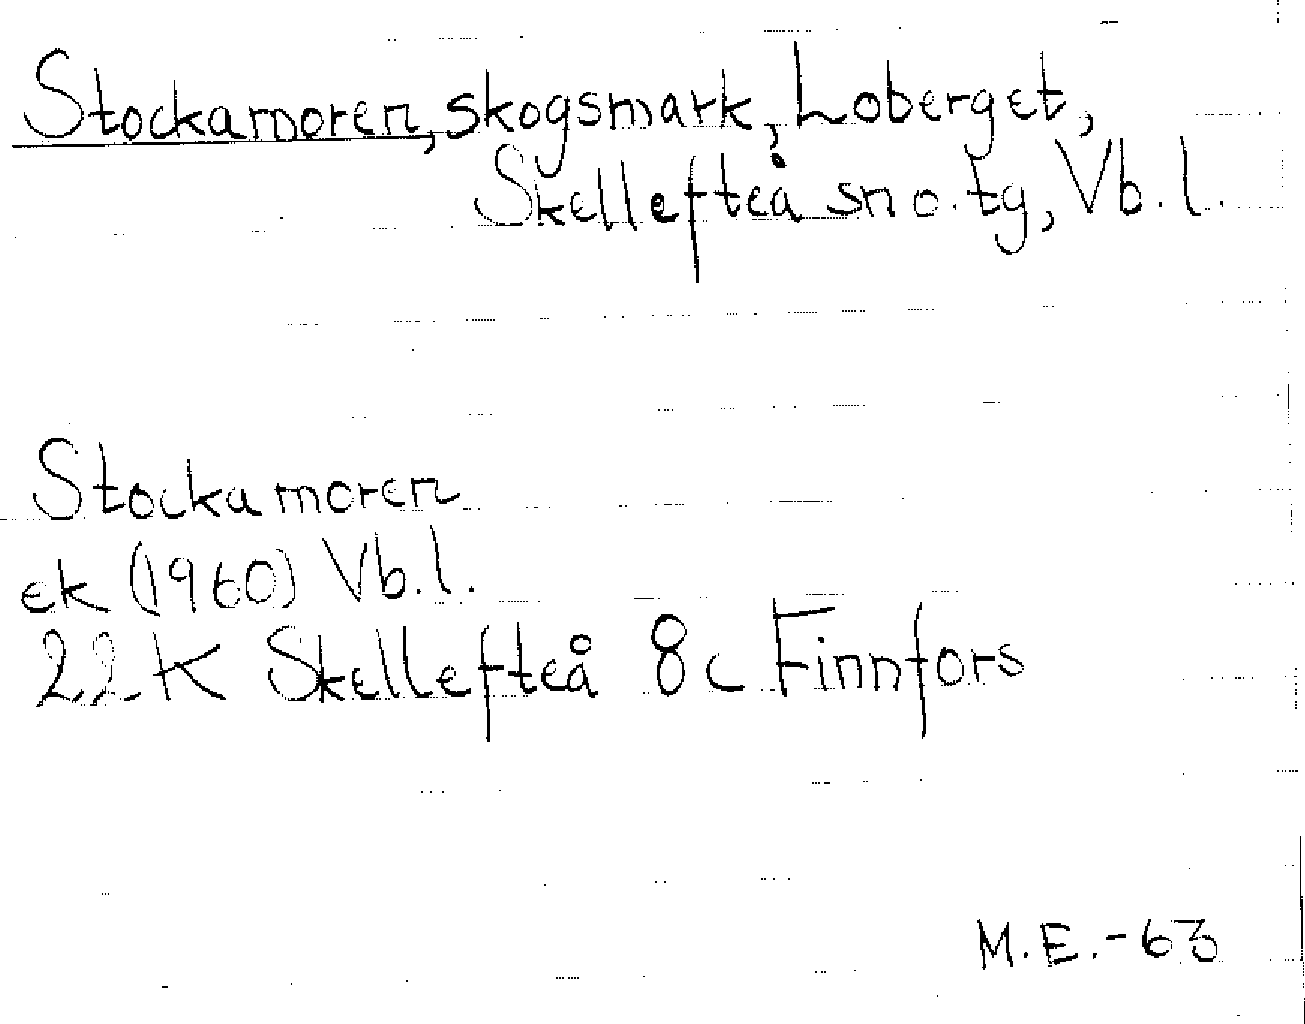 Stockamoren, skogsmark, Loberget,
Skellefteå sn o. tg, Vb. l.
Stockamoren
ek (1960) Vb. l.
22 K Skellefteå 8 c Finnfors
M.E.-63